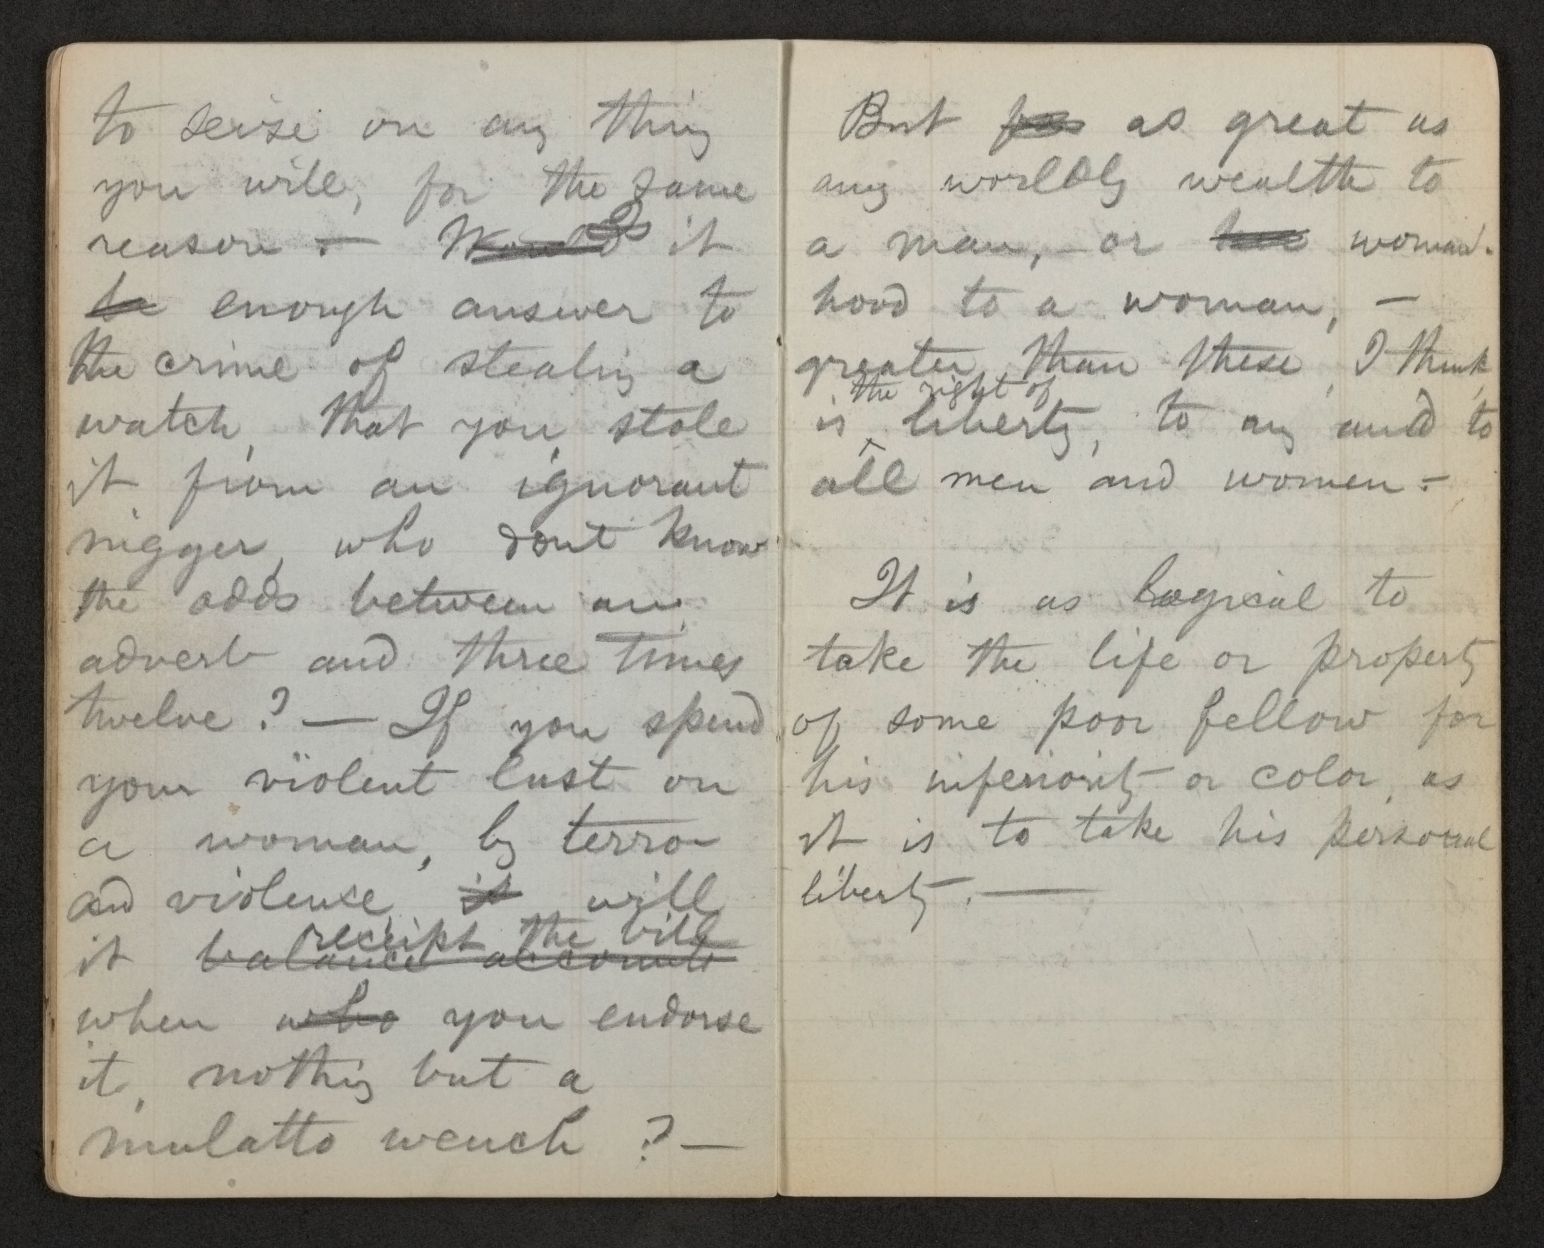 to seize on any thing
you will, for the same
reason. — Would Is it
be enough answer to
the crime of stealing a
watch, that you stole
it from an ignorant
nigger, who dont know
the odds between an
adverb and three times
twelve? — If you spend
your violent lust on
a woman, by terror
and violence, it will
receipt the bill
it balance accounts
when who you endorse
it, nothing but a
mulatto wench? —
But as great as
any worldly wealth to
a man, — or her woman-
hood to a woman, —
greater than these, I think,
the right of
is liberty, to any and to
all men and women. —
It is as logical to
take the life or property
of some poor fellow for
his inferiority or color, as
it is to take his personal
liberty. —